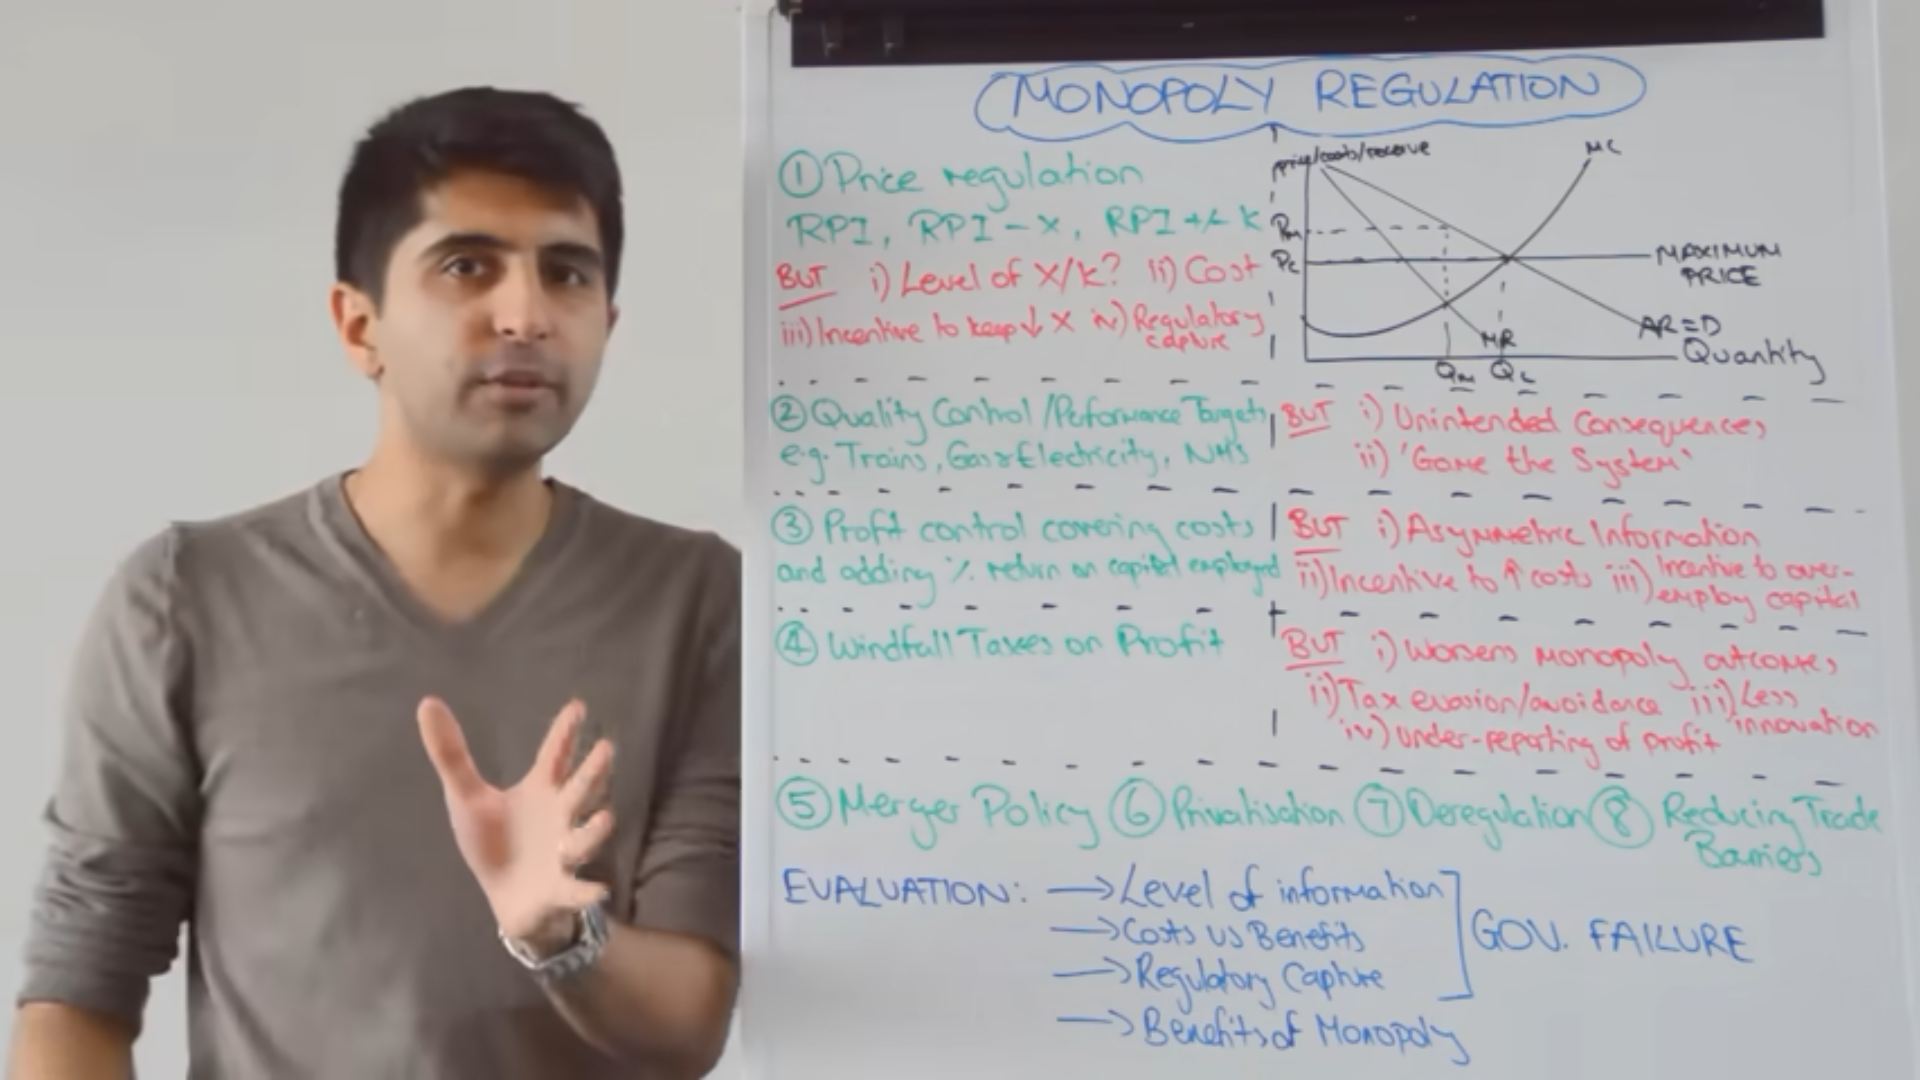 MONOPOLY REGULATION
① Price regulation
RPI, RPI - X, RPI +/- K
BUT i) Level of X/K? ii) Cost
iii) Incentive to keep ↓ X iv) Regulatory
capture
price/costs/revenue
MC
Pm
Pc
MAXIMUM
PRICE
MR
AR = D
Quantity
Qm Qc
② Quality Control / Performance Targets
e.g. Trains, Gas & Electricity, NHS
BUT i) Unintended Consequences
ii) 'Game the System'
③ Profit control covering costs
and adding % return on capital employed
BUT i) Asymmetric Information
ii) Incentive to ↑ costs iii) Incentive to over-
employ capital
④ Windfall Taxes on Profit
BUT i) Worsens monopoly outcomes
ii) Tax evasion/avoidance iii) Less
innovation
iv) under-reporting of profit
⑤ Merger Policy ⑥ Privatisation ⑦ Deregulation ⑧ Reducing Trade
Barriers
EVALUATION: → Level of information
→ Costs vs Benefits
→ Regulatory Capture
GOV. FAILURE
→ Benefits of Monopoly